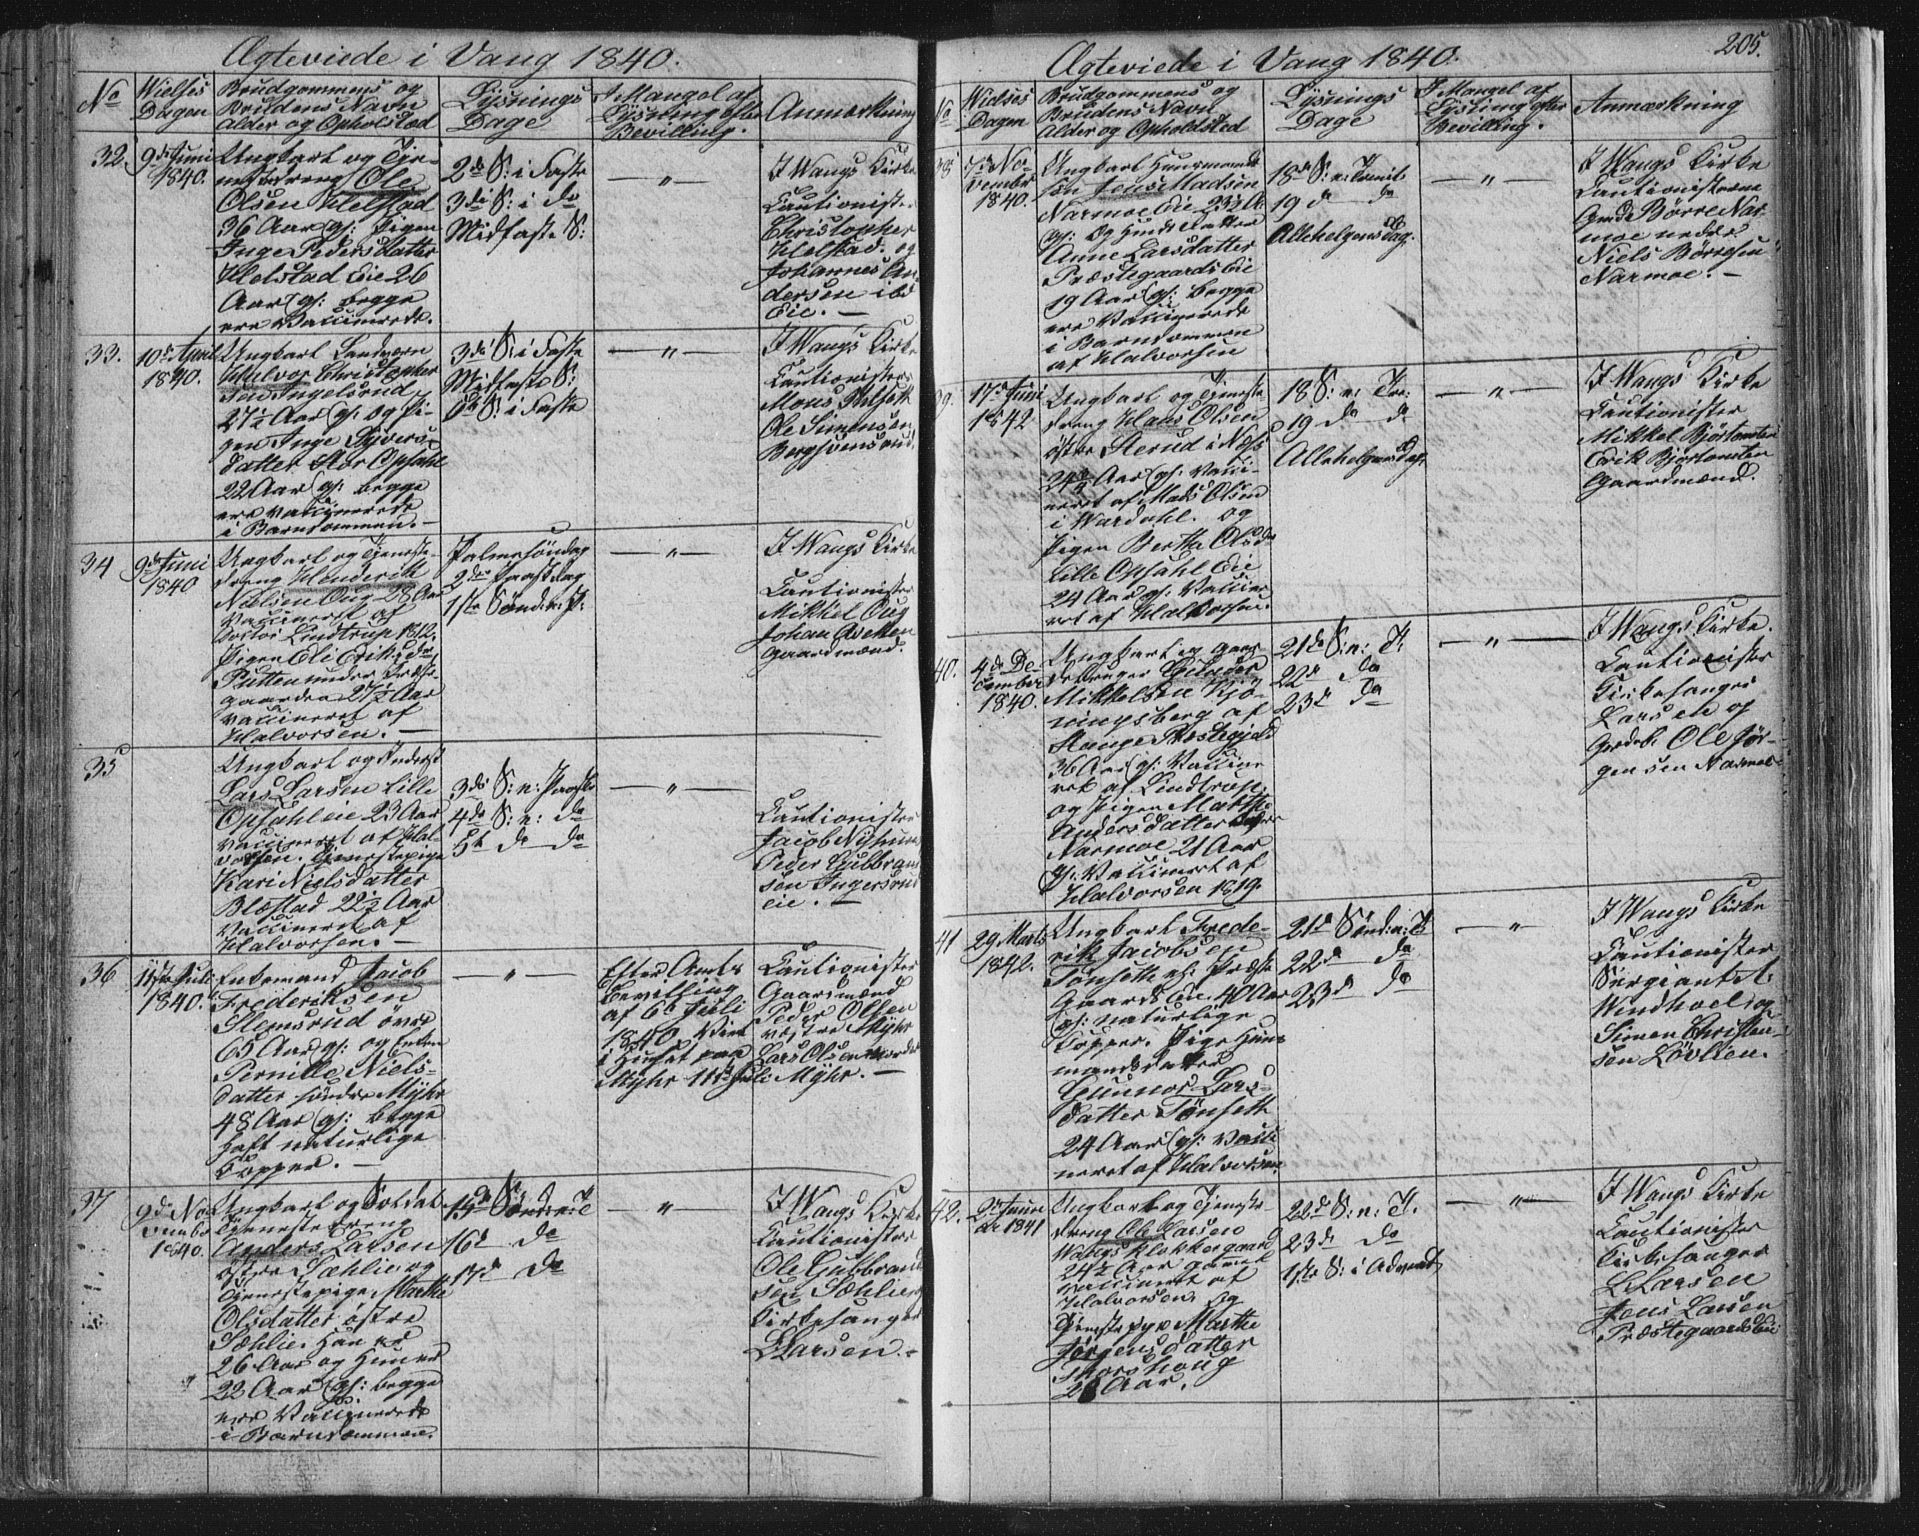 Ægteviede i Vang 1840.
No
Vielses
Dagen
Brudgommens og
Brudens Navn
Alder og Opholdstæd
Lysnings
Dage
I Mangel af
Lysning efter
Bevilling.
Anmærkning
32.
9de Juni
1840.
Ungkarl og Tje-
nestedreng Ole
Olsen Helstad
36 Aar gl: Pigen
Inge Pedersdatter
Helstad Eie 26
Aar gl: begge
ere Vaccinerede.
2de S: i Faste
3die S: i do
Midfaste S:
— " —
I Wangs Kirke
Cautionister
Christopher
Helstad og
Johannes An-
dersen ibd
Eie. —
33.
10de April
1840.
Ungkarl Landværn
Halvor Christopher
sen Ingelsrud
27½ Aar gl: og Pi-
gen Inge Syvers-
datter Stor Opsahl
22 Aar gl: begge
ere vaccinerede
i Barndommen. —
3die S: i Faste
Midfaste S:
5te S: i Faste
— " —
I Wangs Kirke
Cautionister
Mons
Ole Simensen
Bergshvensrud.
34
9de Juni
1840
Ungkarl og Tjeneste-
dreng Henderik
Nielsen Oug 28 Aar
Vaccineret af
Doctor Lindtrup 1812.
Pigen Eli Eriksdr
Putten under Præste-
gaarden 27½ Aar
vaccineret af
Halvorsen. —
Palmesøndag
2den Paaskedag
1ste Sønd: n: P:
— " —
I Wangs Kirke
Cautionister
Mikkel Oug
Johan
Gaardmænd.
35
Ungkarl og Inderst
Lars Larsen Lille
Opsahleie 23 Aar
vaccineret af Hal-
vorsen. Tjenestepige
Kari Nielsdatter
Blæstad 22½ Aar
Vaccineret af
Halvorsen. —
3die S: n: Paaske
4de S: n: do
5te do do
— " —
Cautionister
Jacob Nyhuus
Peder Gulbrand
sen Ingersrud
eie. —
36
11te Juli
1840.
Enkemand Jacob
Frederiksen
Slemsrud övre
65 Aar gl: og Enken
Pernille Niels-
datter søndre Myhr
48 Aar gl: begge
haft naturlige
Kopper. —
— " —
Efter Amts
Bevilling
af 6te Juli
1840 Viet
i Huset paa
Myhr 11te Juli
Cautionister
Gaardmænd
Peder Olsen
vestre Myhr
Lars Olsen nordre
Myhr. —
37
9de No-
vember
1840.
Ungkarl og Soldat
Tjenestedreng
Anders Larsen
østre Sæhlie og
Tjenestepige Marthe
Olsdatter østre
Sæhlie. Han er
26 Aar og Hun er
22 Aar gl: begge
ere Vaccinerede
i Barndommen.
15de Sønd: n: T
16de do
17de do
— " —
I Wangs Kirke
Cautionister
Ole Gulbrand
sen Sæhlie
Kirkesanger
L Larsen. —
Ægteviede i Vang 1840.
205.
No
Vielses
Dagen
Brudgommens og
Brudens Navn
Alder og Opholdsted
Lysnings
Dage
I Mangel af
Lysning efter
Bevilling.
Anmærkning
38
7de No-
vembr
1840.
Ungkarl Huusmands
søn Jens Madsen
Narmoe Eie 23½ A:
gl: og Huusm: datter
Anne Larsdatter
Præstegaards Eie
19 Aar gl: begge
ere Vaccinerede
i Barndommen
af Halvorsen
18de S: n: Trinit
19 d do
Allehelgensdag.
— " —
I Wangs Kirke
Cautionisterne
Gmd Børre Nar-
moe nedre
Niels Børresen
Narmoe. —
39.
17de Juni
1842
Ungkarl og Tjeneste
dreng Hans Olsen
østre Sterud i Næs
24¾ Aar gl: Vacci-
neret af Mads Olsen
i Wardahl. og
Pigen Berthe Olsdr
Lille Opsahl Eie
24 Aar gl: Vaccine-
ret af Halvorsen.
18 S: n: Tre:
19 do do
Allehelgensdag.
— " —
I Wangs Kirke
Cautionister
Mikkel Bjørtomten
Erik Bjørtomten
Gaardmænd.
40.
4de De-
cember
1840.
Ungkarl og Gaar-
debruger Eilerder
Mikkelsen Kjö-
ningsberg af
Stange Præstegjeld
36 Aar gl: Vaccine-
ret af Lindtrup.
og Pigen Marthe
Andersdatter
Narmoe 21 Aar
gl: Vaccineret af
Halvorsen 1819.
21de S: n: T:
22de do
23de do
— " —
I Wangs Kirke.
Cautionister
Kirkesanger
Larsen og
Gaardb: Ole Jör-
gensen Narmoe
41
29 Marts
1842.
Ungkarl Frede-
rik Jacobsen
Tønseth gl: Præste
Gaards Eie. 40 Aar
gl: naturlige
Kopper. Pige Huus
mandsdatter
Gunnor Lars-
datter Tønseth
24 Aar gl: Vacci
neret af Halvorsen
21de Sønd: n: T
22de do
23de do
— " —
I Wangs Kirke
Cautionister
Sergiant A:
Windhoel og
Simen Christen-
sen Løvlien.
42.
2de Janu
ar 1841
Ungkarl og Tjeneste
dreng Ole Larsen
Wangs Klokkergaard
24½ Aar gammel
Vaccineret af
Halvorsen. og
Tjenestepige Marthe
Jørgensdatter
Skorshoug
28 Aar.
22de S: n: T.
23de do
1ste S: i Advent
— " —
I Wangs Kirke
Cautionister
Kirkesanger
L Larsen
Jens Larsen
Præstegaards Eie